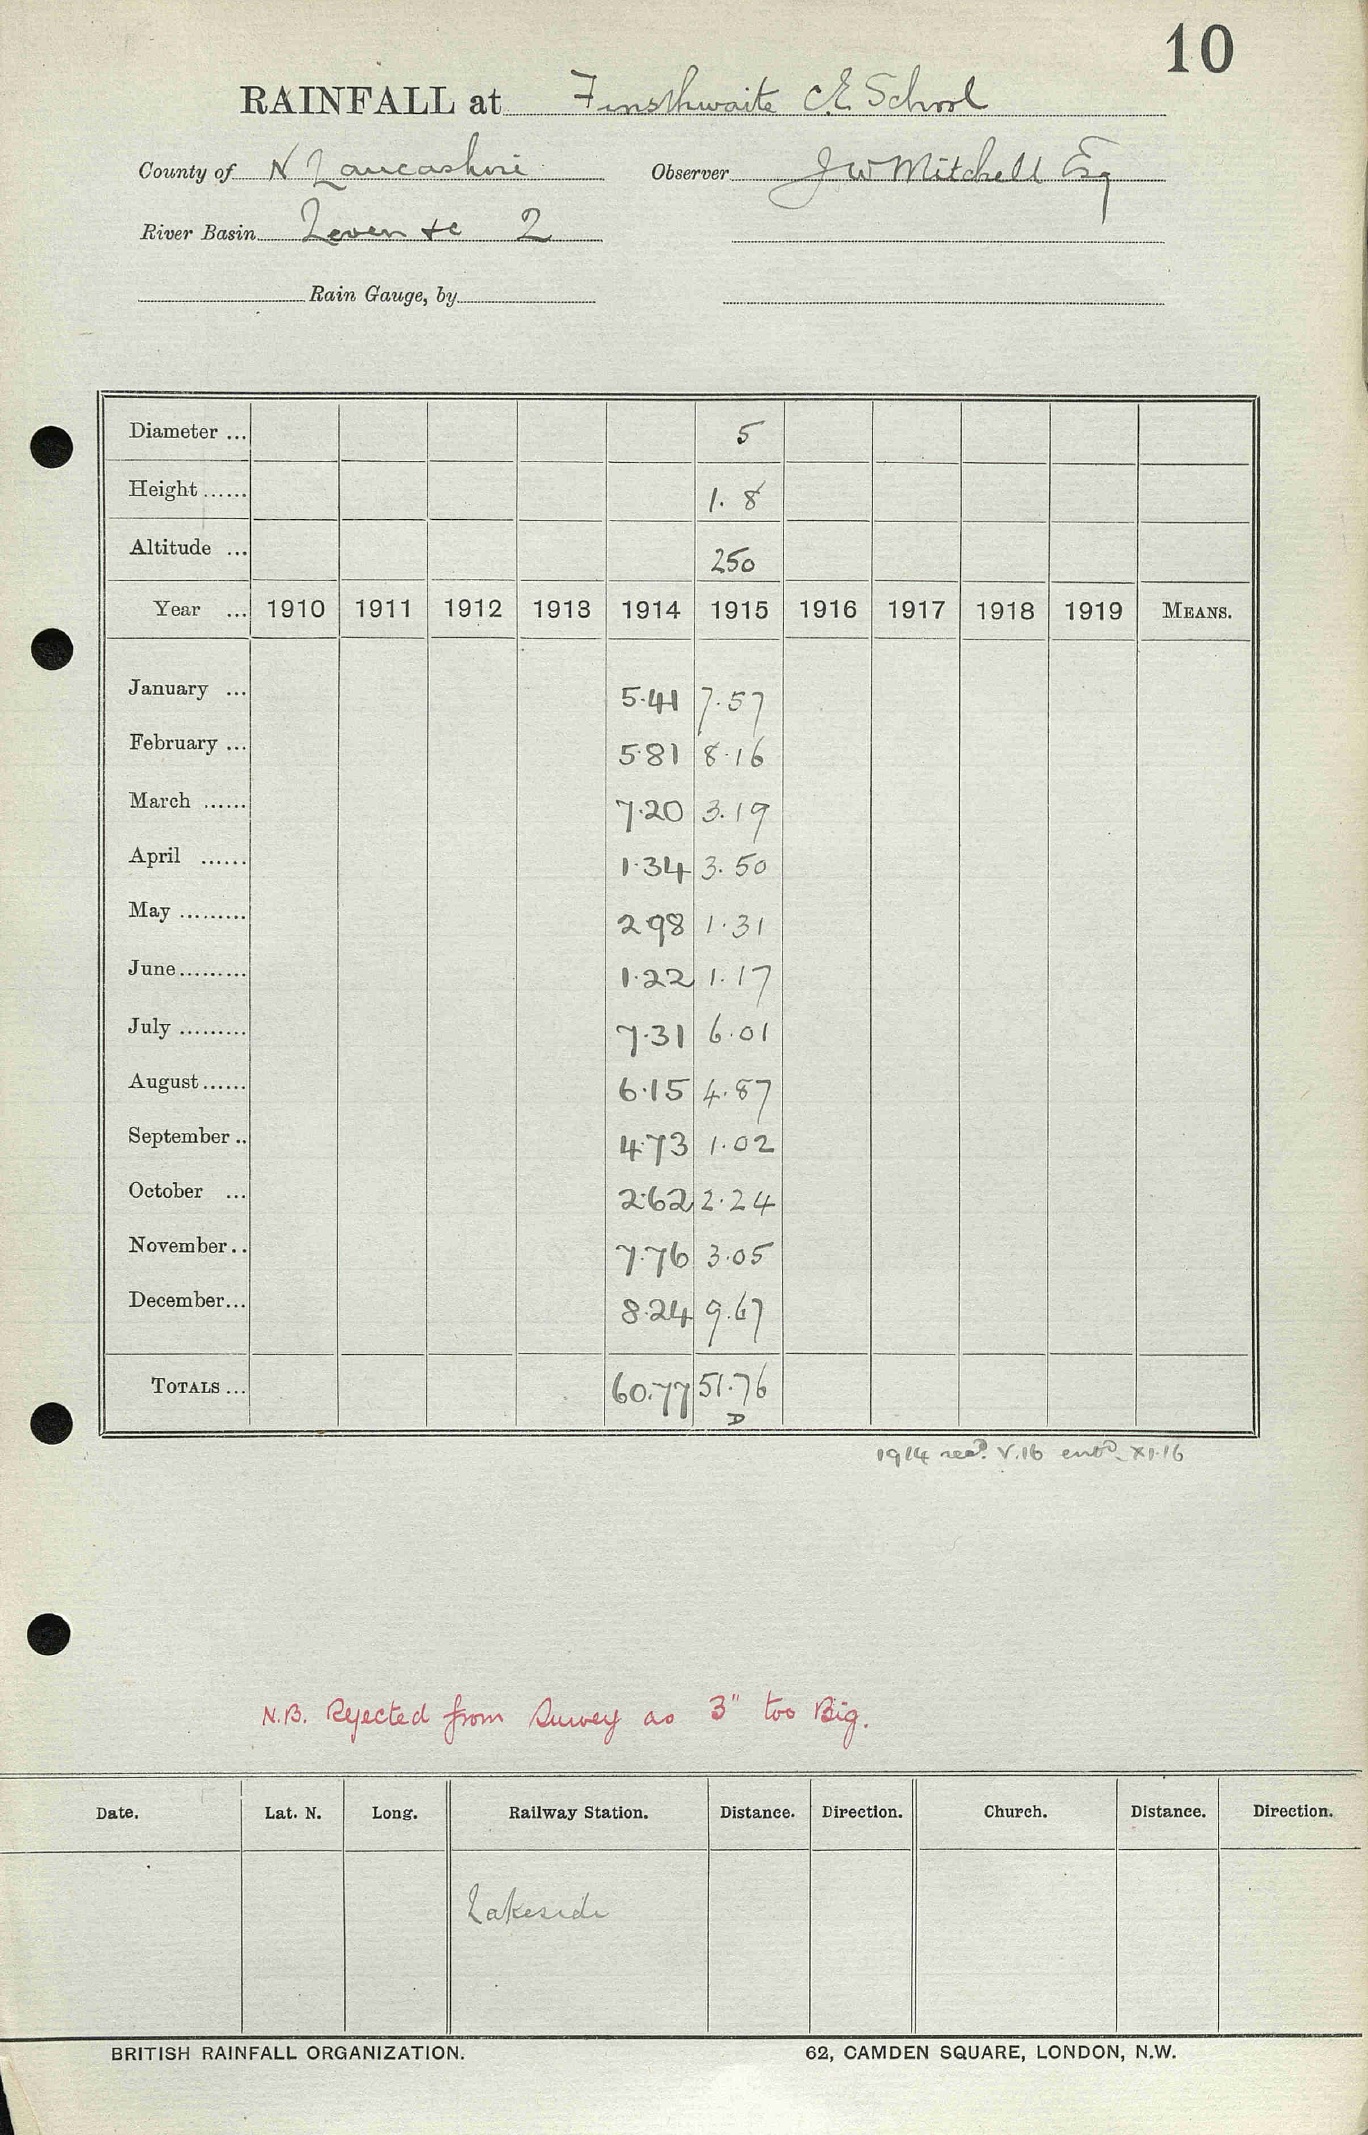 10
RAINFALL at Finsthwaite C.E. School
County of N Lancashire Observer J W Mitchell Esq
River Basin Leven &c 2
Rain Gauge, by
Diameter ... 5
Height ...... 1. 8
Altitude ... 250
Year ... 1910 1911 1912 1913 1914 1915 1916 1917 1918 1919 MEANS.
January ... 5.41 7.57
February ... 5.81 8.16
March ...... 7.20 3.19
April ...... 1.34 3.50
May ......... 2.98 1.31
June ......... 1.22 1.17
July ......... 7.31 6.01
August ...... 6.15 4.87
September .. 4.73 1.02
October ... 2.62 2.24
November .. 7.76 3.05
December ... 8.24 9.67
TOTALS ... 60.77 51.76
D
1914 recd. V.16 entd. XI.16
N.B. Rejected from Survey as 3" too Big.
Date. Lat. N. Long. Railway Station. Distance. Direction. Church. Distance. Direction.
Lakeside
BRITISH RAINFALL ORGANIZATION. 62, CAMDEN SQUARE, LONDON, N.W.